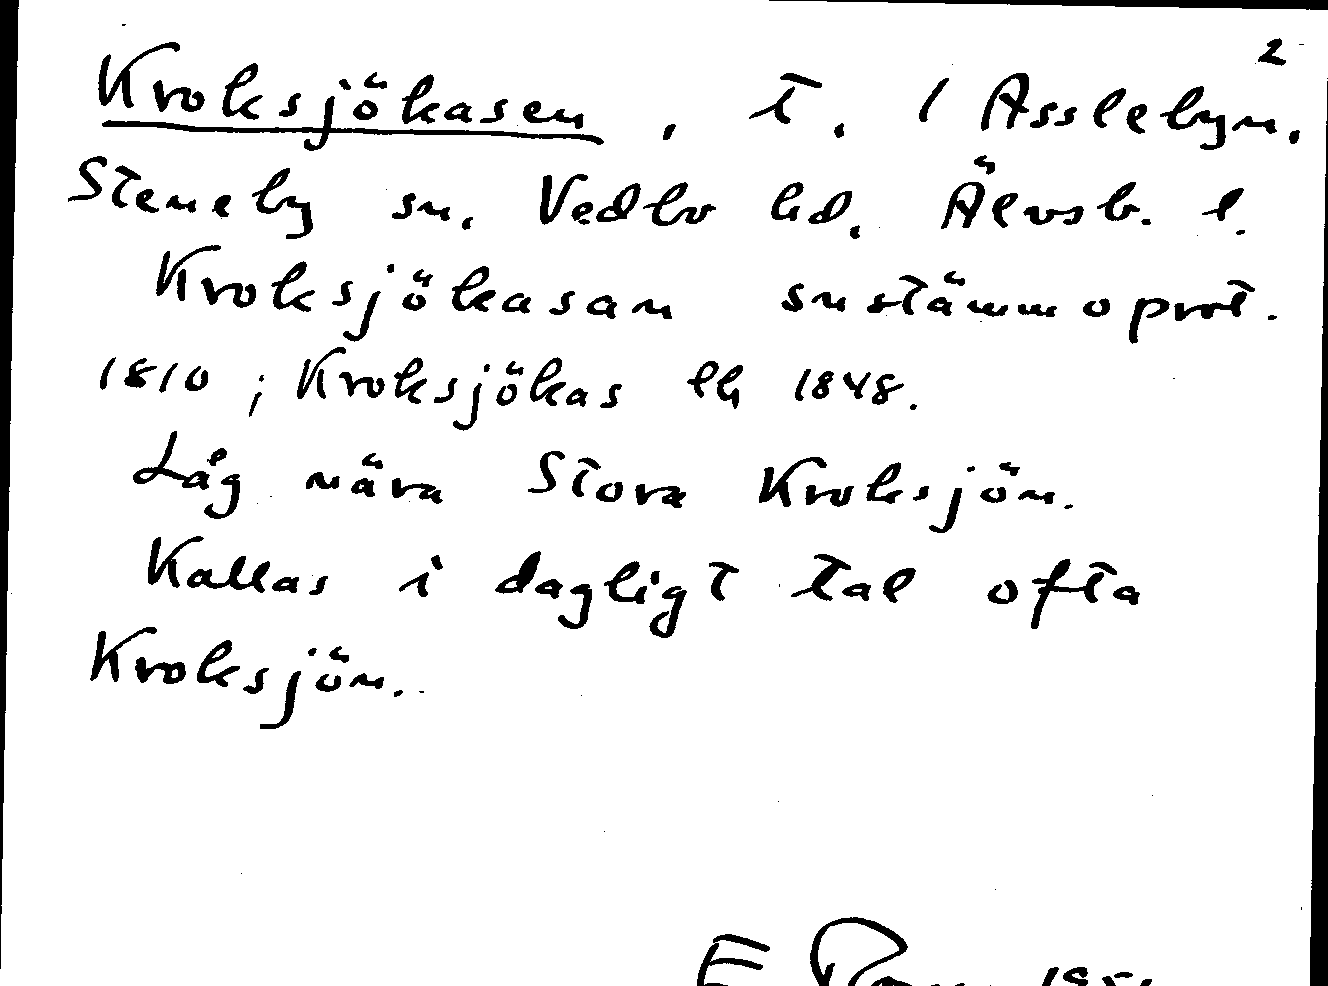 2
Kroksjökasen, t. / Asslebyn,
Steneby sn, Vedbo hd, Älvsb. l.
Kroksjökasan snstämmoprot.
1810; Kroksjökas lh 1848.
Låg nära Stora Kroksjön.
Kallas i dagligt tal ofta
Kroksjön.
E